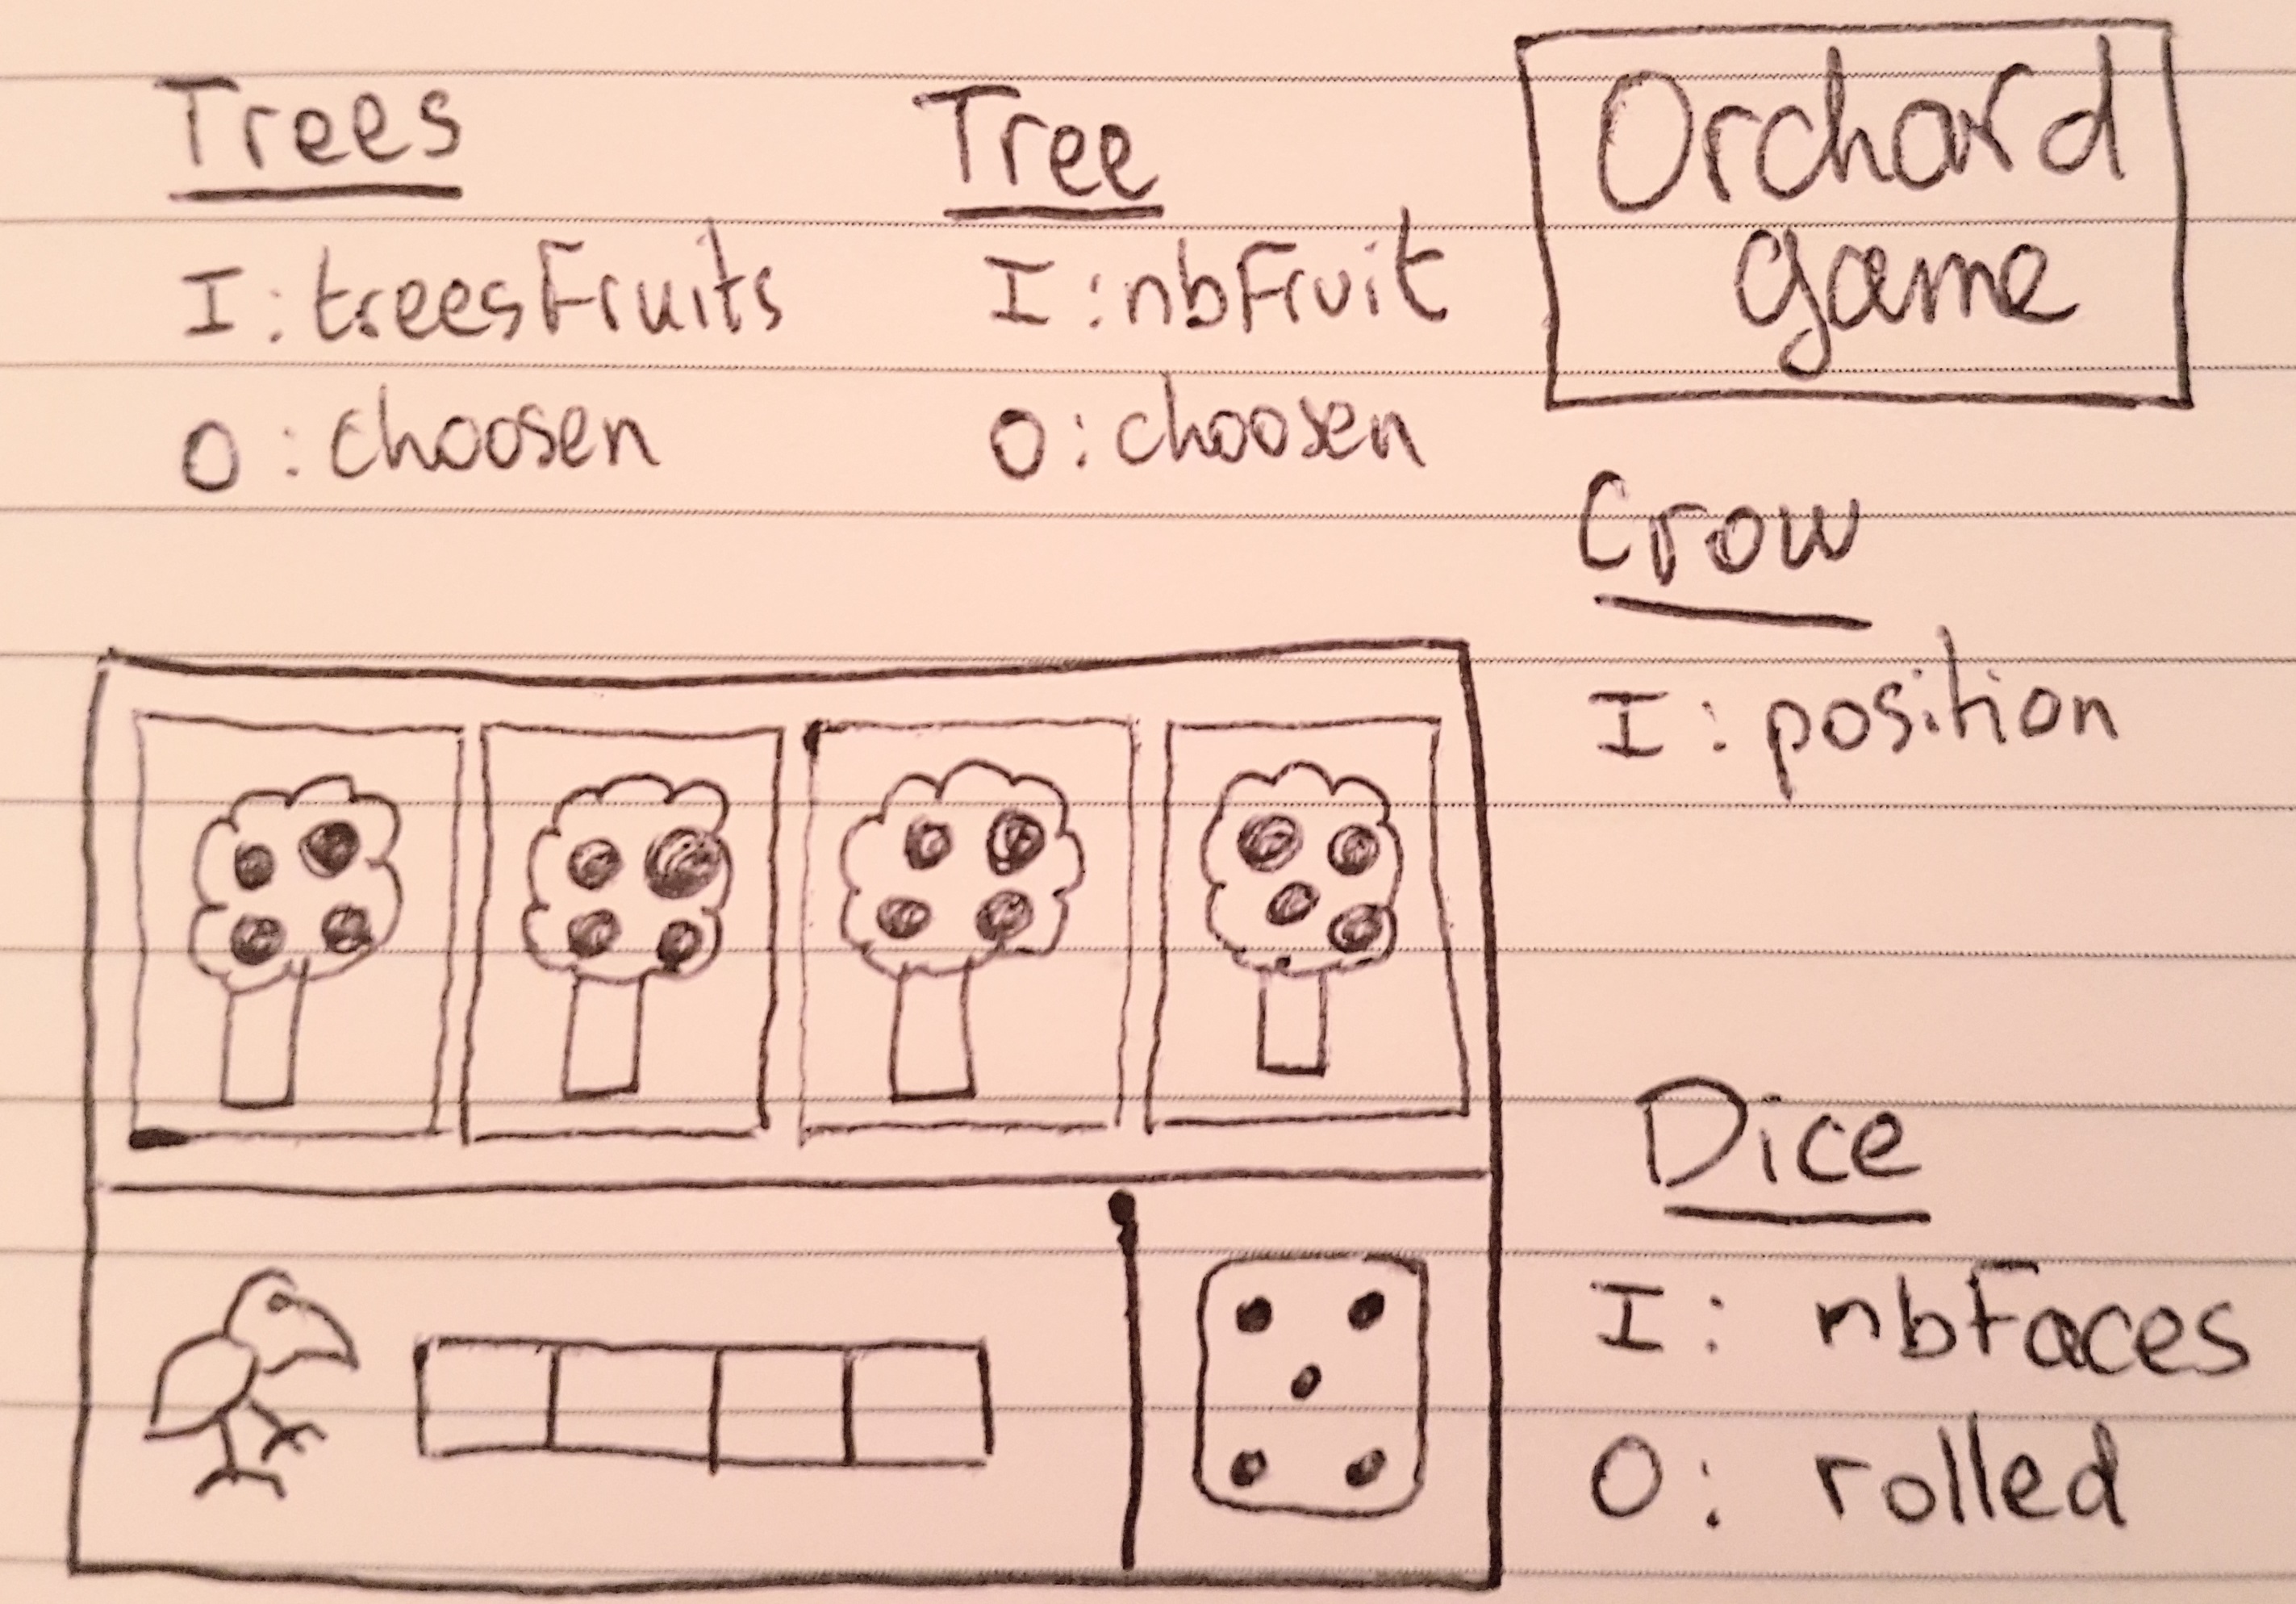 Trees
I: treesFruits
O: choosen
Tree
I: nbFruit
O: choosen
Orchard
game
Crow
I: position
Dice
I: nbFaces
O: rolled